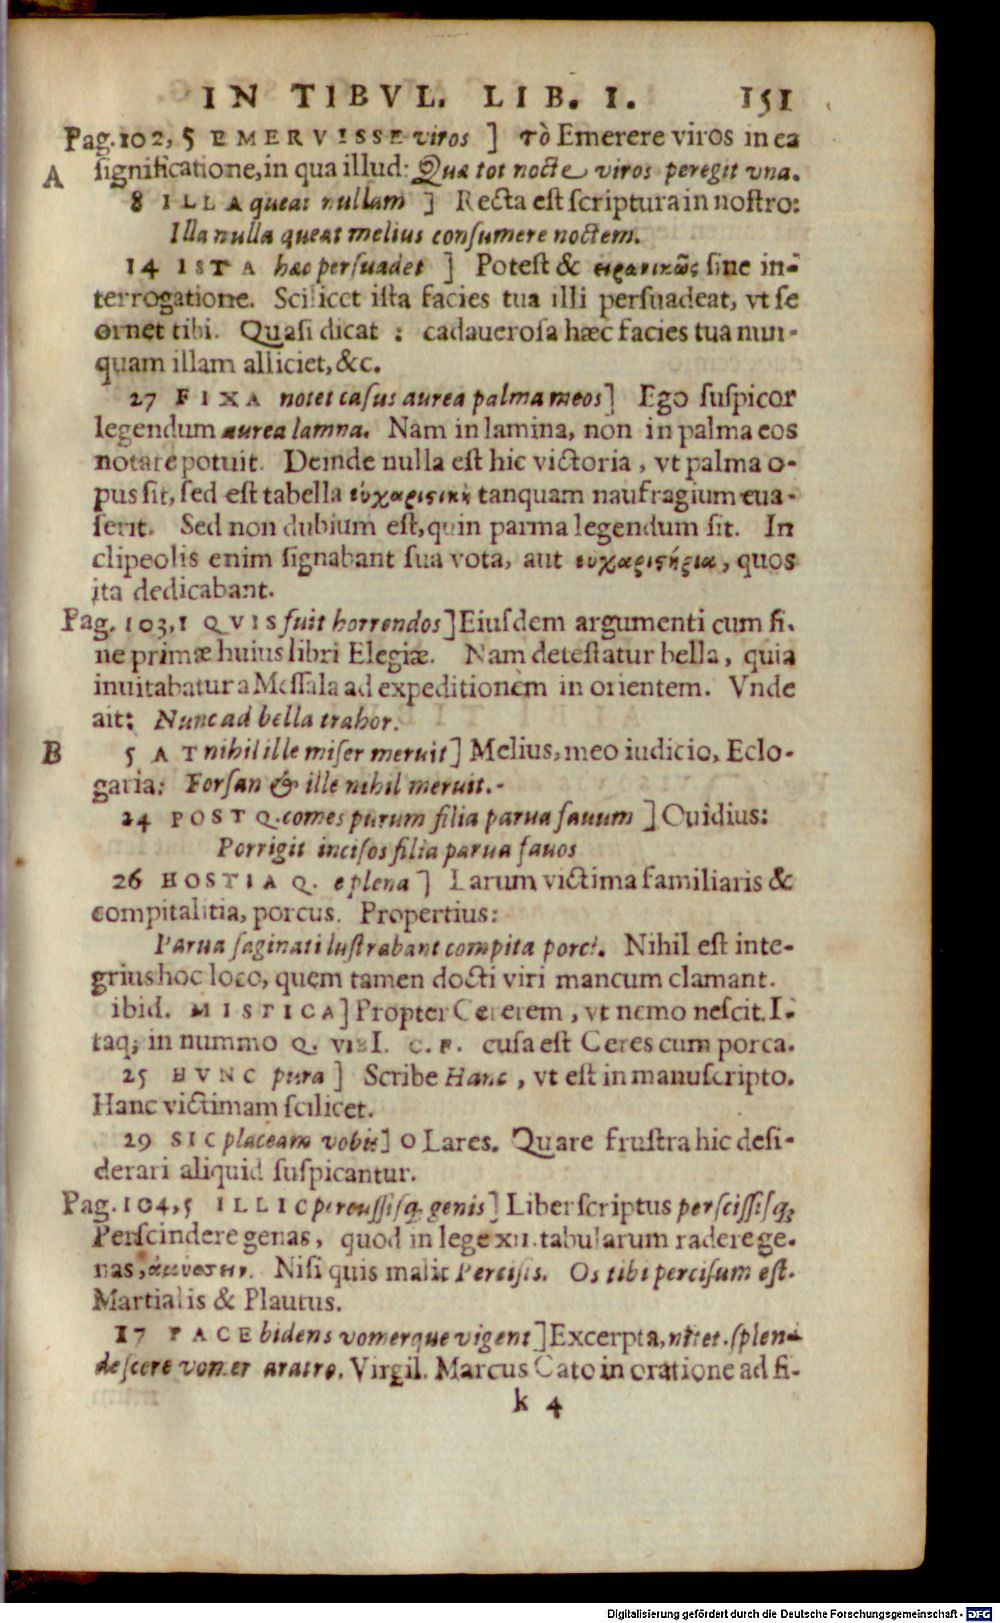 IN TIBVL. LIB. I. 151
Pag. 102, 5 EMERVISSE viros ] τὸ Emerere viros in ea
A significatione, in qua illud: Quæ tot nocte viros peregit vna.
8 ILLA queat nullam ] Recta est scriptura in nostro:
Illa nulla queat melius consumere noctem.
14 ISTA hæc persuadet ] Potest & εἰρωνικῶς sine in-
terrogatione. Scilicet ista facies tua illi persuadeat, vt se
ornet tibi. Quasi dicat : cadauerosa hæc facies tua nun-
quam illam alliciet, &c.
27 FIXA notet casus aurea palma meos] Ego suspicor
legendum aurea lamna. Nam in lamina, non in palma eos
notare potuit. Deinde nulla est hic victoria, vt palma o-
pus sit, sed est tabella εὐχαριστικὴ tanquam naufragium eua-
serit. Sed non dubium est, quin parma legendum sit. In
clipeolis enim signabant sua vota, aut εὐχαριστήρια, quos
ita dedicabant.
Pag. 103, 1 QVIS fuit horrendos] Eiusdem argumenti cum fi-
ne primæ huius libri Elegiæ. Nam detestatur bella, quia
inuitabatur a Messala ad expeditionem in orientem. Vnde
ait: Nunc ad bella trahor.
B 5 AT nihil ille miser meruit] Melius, meo iudicio, Eclo-
garia: Forsan & ille nihil meruit.
24 POSTQ. comes purum filia parua fauum ] Ouidius:
Porrigit incisos filia parua fauos
26 HOSTIA Q. e plena ] Larum victima familiaris &
compitalitia, porcus. Propertius:
Parua saginati lustrabant compita porci. Nihil est inte-
grius hoc loco, quem tamen docti viri mancum clamant.
ibid. MISTICA] Propter Cererem, vt nemo nescit. I-
taq; in nummo Q. VIBI. C. F. cusa est Ceres cum porca.
25 HVNC pura ] Scribe Hanc, vt est in manuscripto.
Hanc victimam scilicet.
29 SIC placeam vobis] o Lares. Quare frustra hic desi-
derari aliquid suspicantur.
Pag. 104, 5 ILLIC percussisq; genis] Liber scriptus perscissisq;
Perscindere genas, quod in lege XII. tabularum radere ge-
nas, Nisi quis malit Percisis. Os tibi percisum est.
Martialis & Plautus.
17 PACE bidens vomerque vigent] Excerpta, nitet. splen-
descere vomer aratro. Virgil. Marcus Cato in oratione ad fi-
k 4
Digitalisierung gefördert durch die Deutsche Forschungsgemeinschaft - DFG